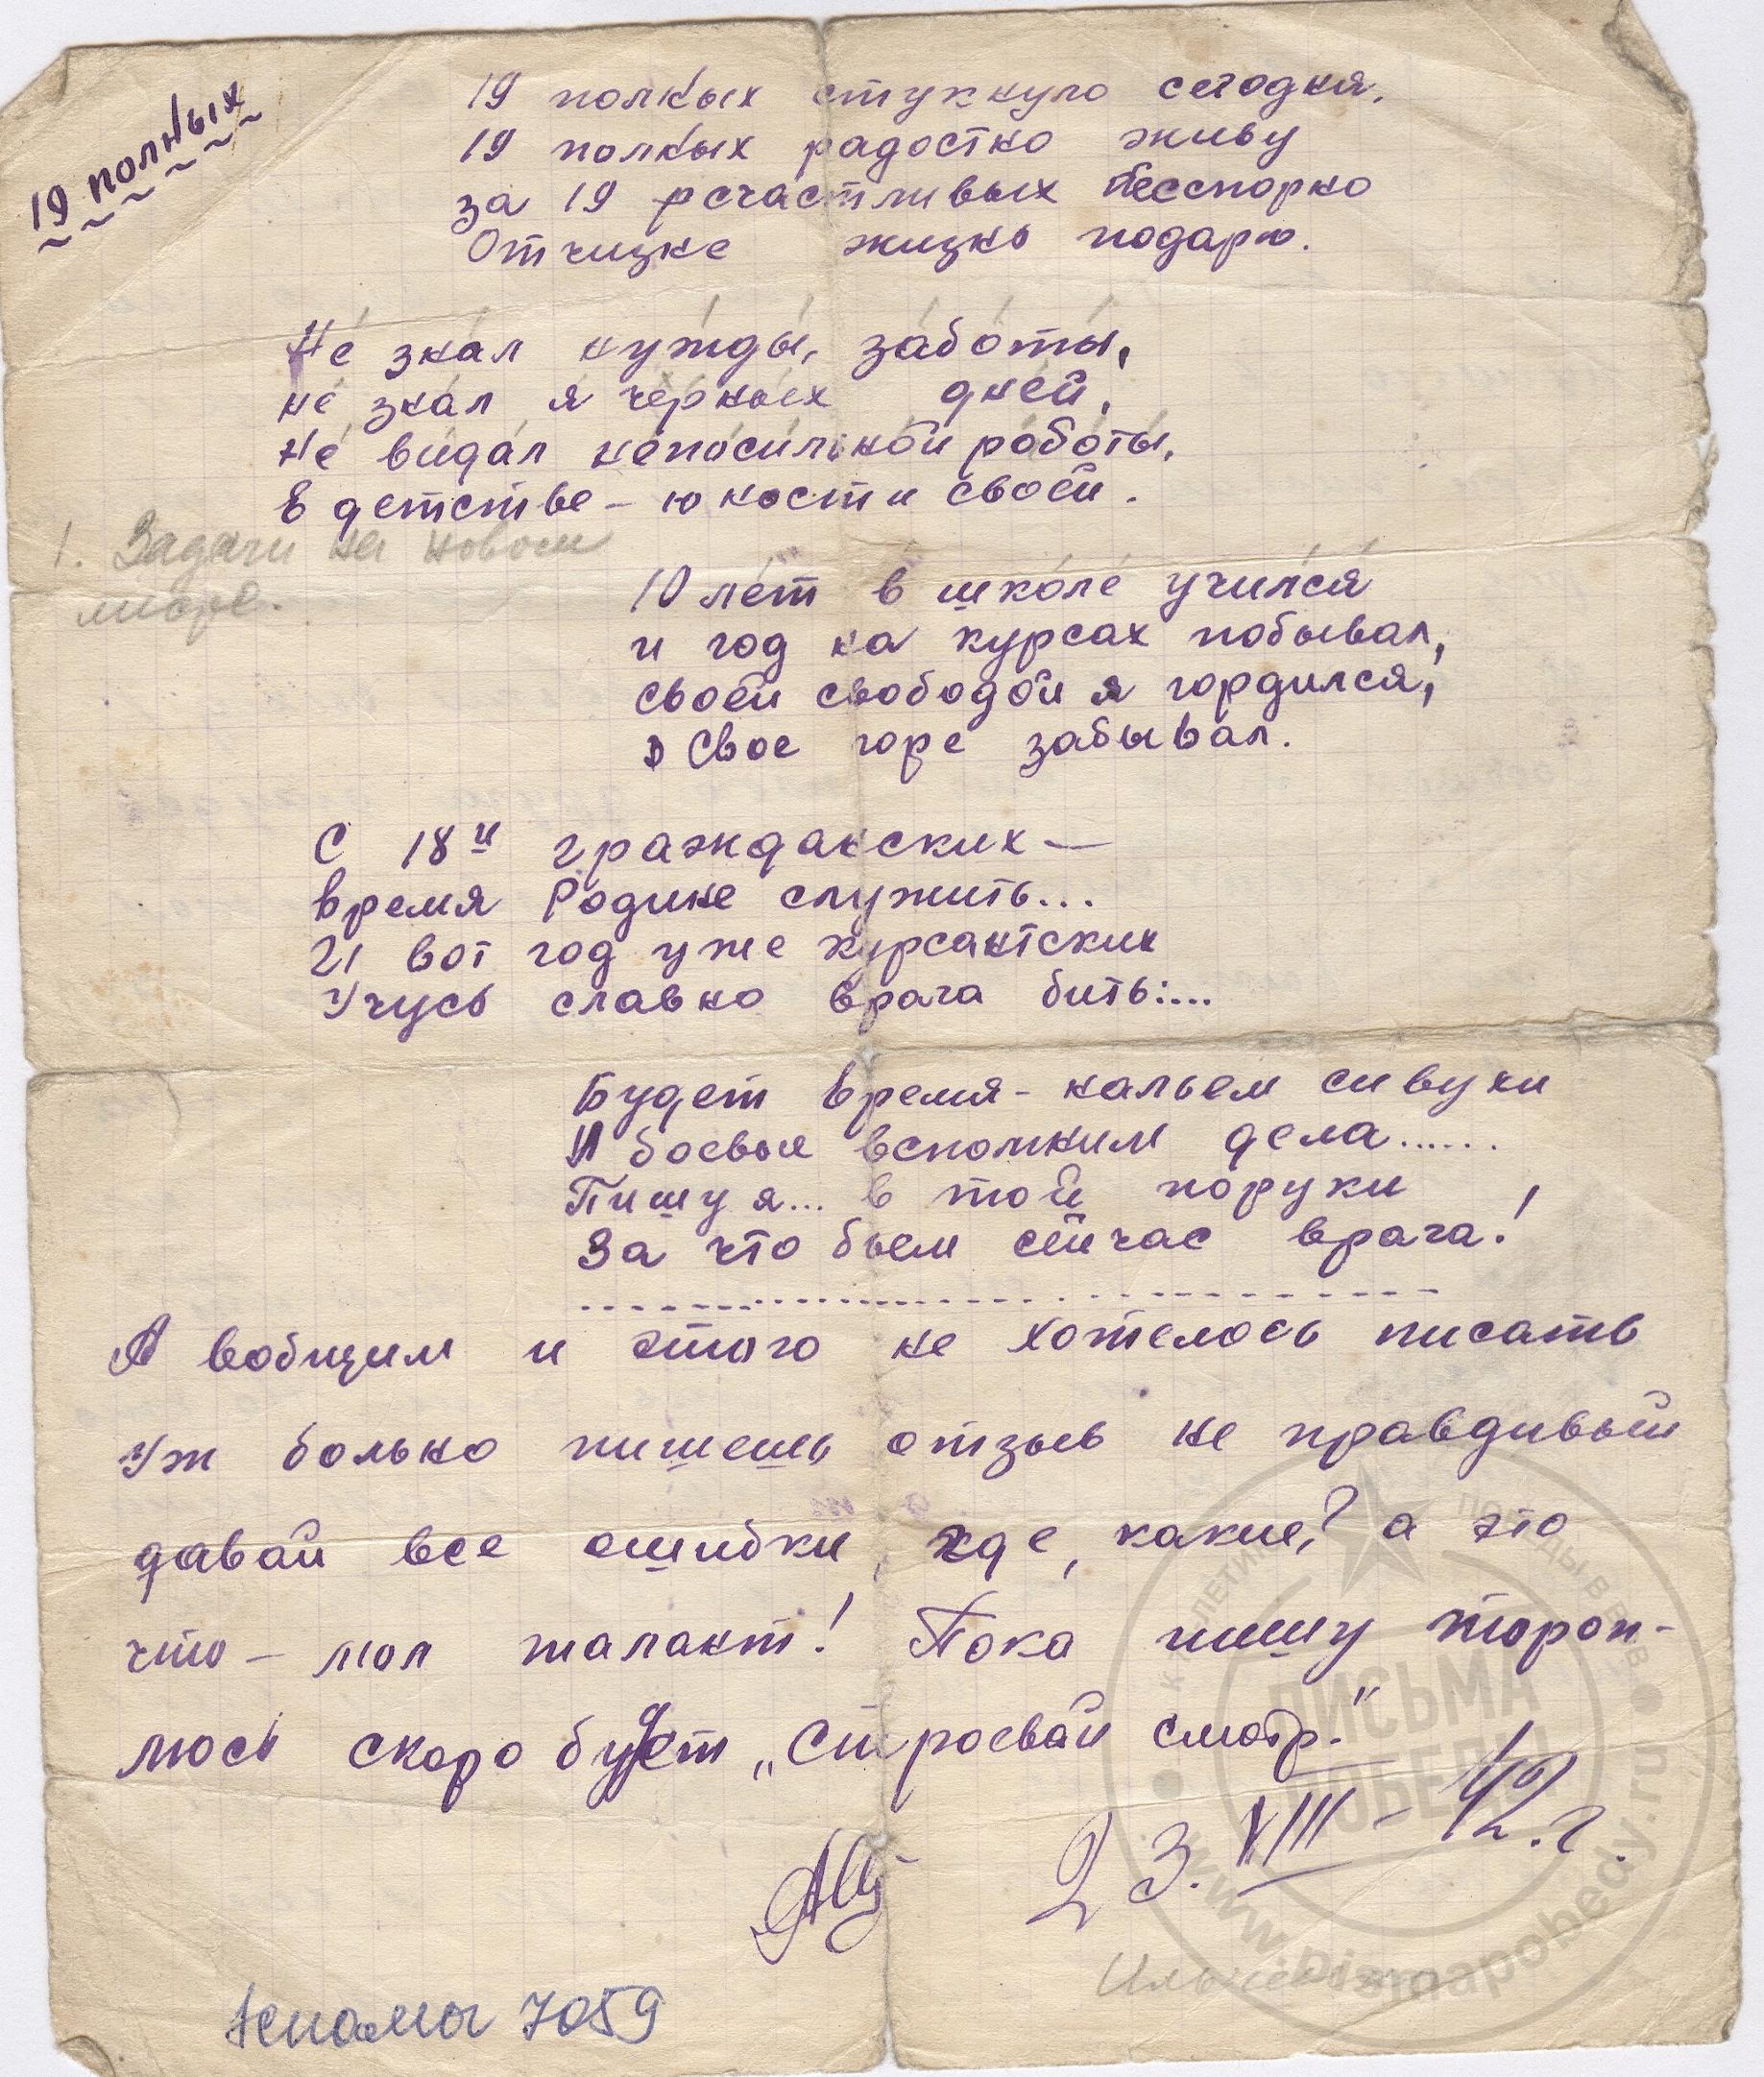 19 полных
19 полных стукнуло сегодня,
19 полных радостно живу
за 19 счастливых бесспорно
Отчизне жизнь подарю.
Не знал нужды, заботы,
не знал я черных дней,
Не видал непосильной роботы,
В детстве - юности своей.
1. Задачи на новом
10 лет в школе учился
и год на курсах побывал,
своей свободой я гордился,
Свое горе забывал.
С 18и гражданских —
время Родине служить...
И вот год уже курсантских
Учусь славно врага бить:...
Будет время - нальем сивухи
И боевые вспомним дела......
Пишу я... в той поруки
За что бьем сейчас врага!
А вобщим и этого не хотелось писать
уж больно пишешь отзыв не правдивый
давай все ошибки, где, какие? а это
что - мол талант! Пока пишу тороп-
люсь скоро будет „Строевой смотр."
23.VIII - 42.г.
7059
К ЛЕТИЮ ПОБЕДЫ В ВОВ
ПИСЬМА ПОБЕДЫ
www.pismapobedy.ru